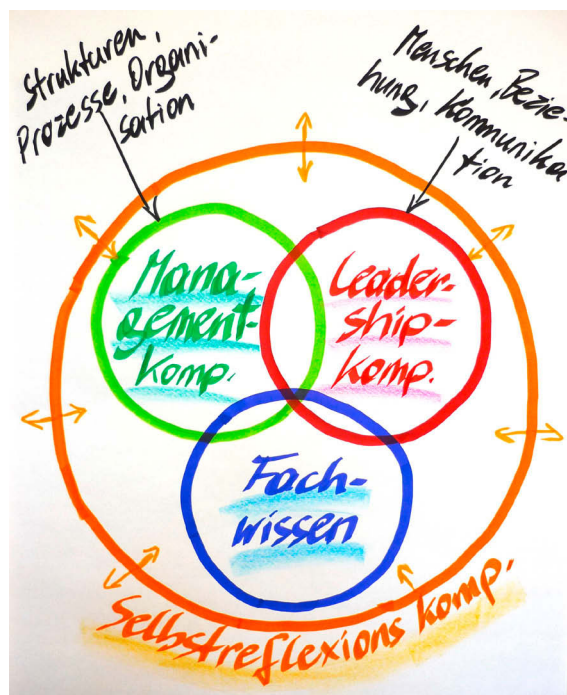 Strukturen,
Prozesse, Organi-
sation
Menschen, Bezie-
hung, Kommunika
tion
Mana-
gement-
komp.
Leader-
ship-
komp.
Fach-
wissen
Selbstreflexions komp.